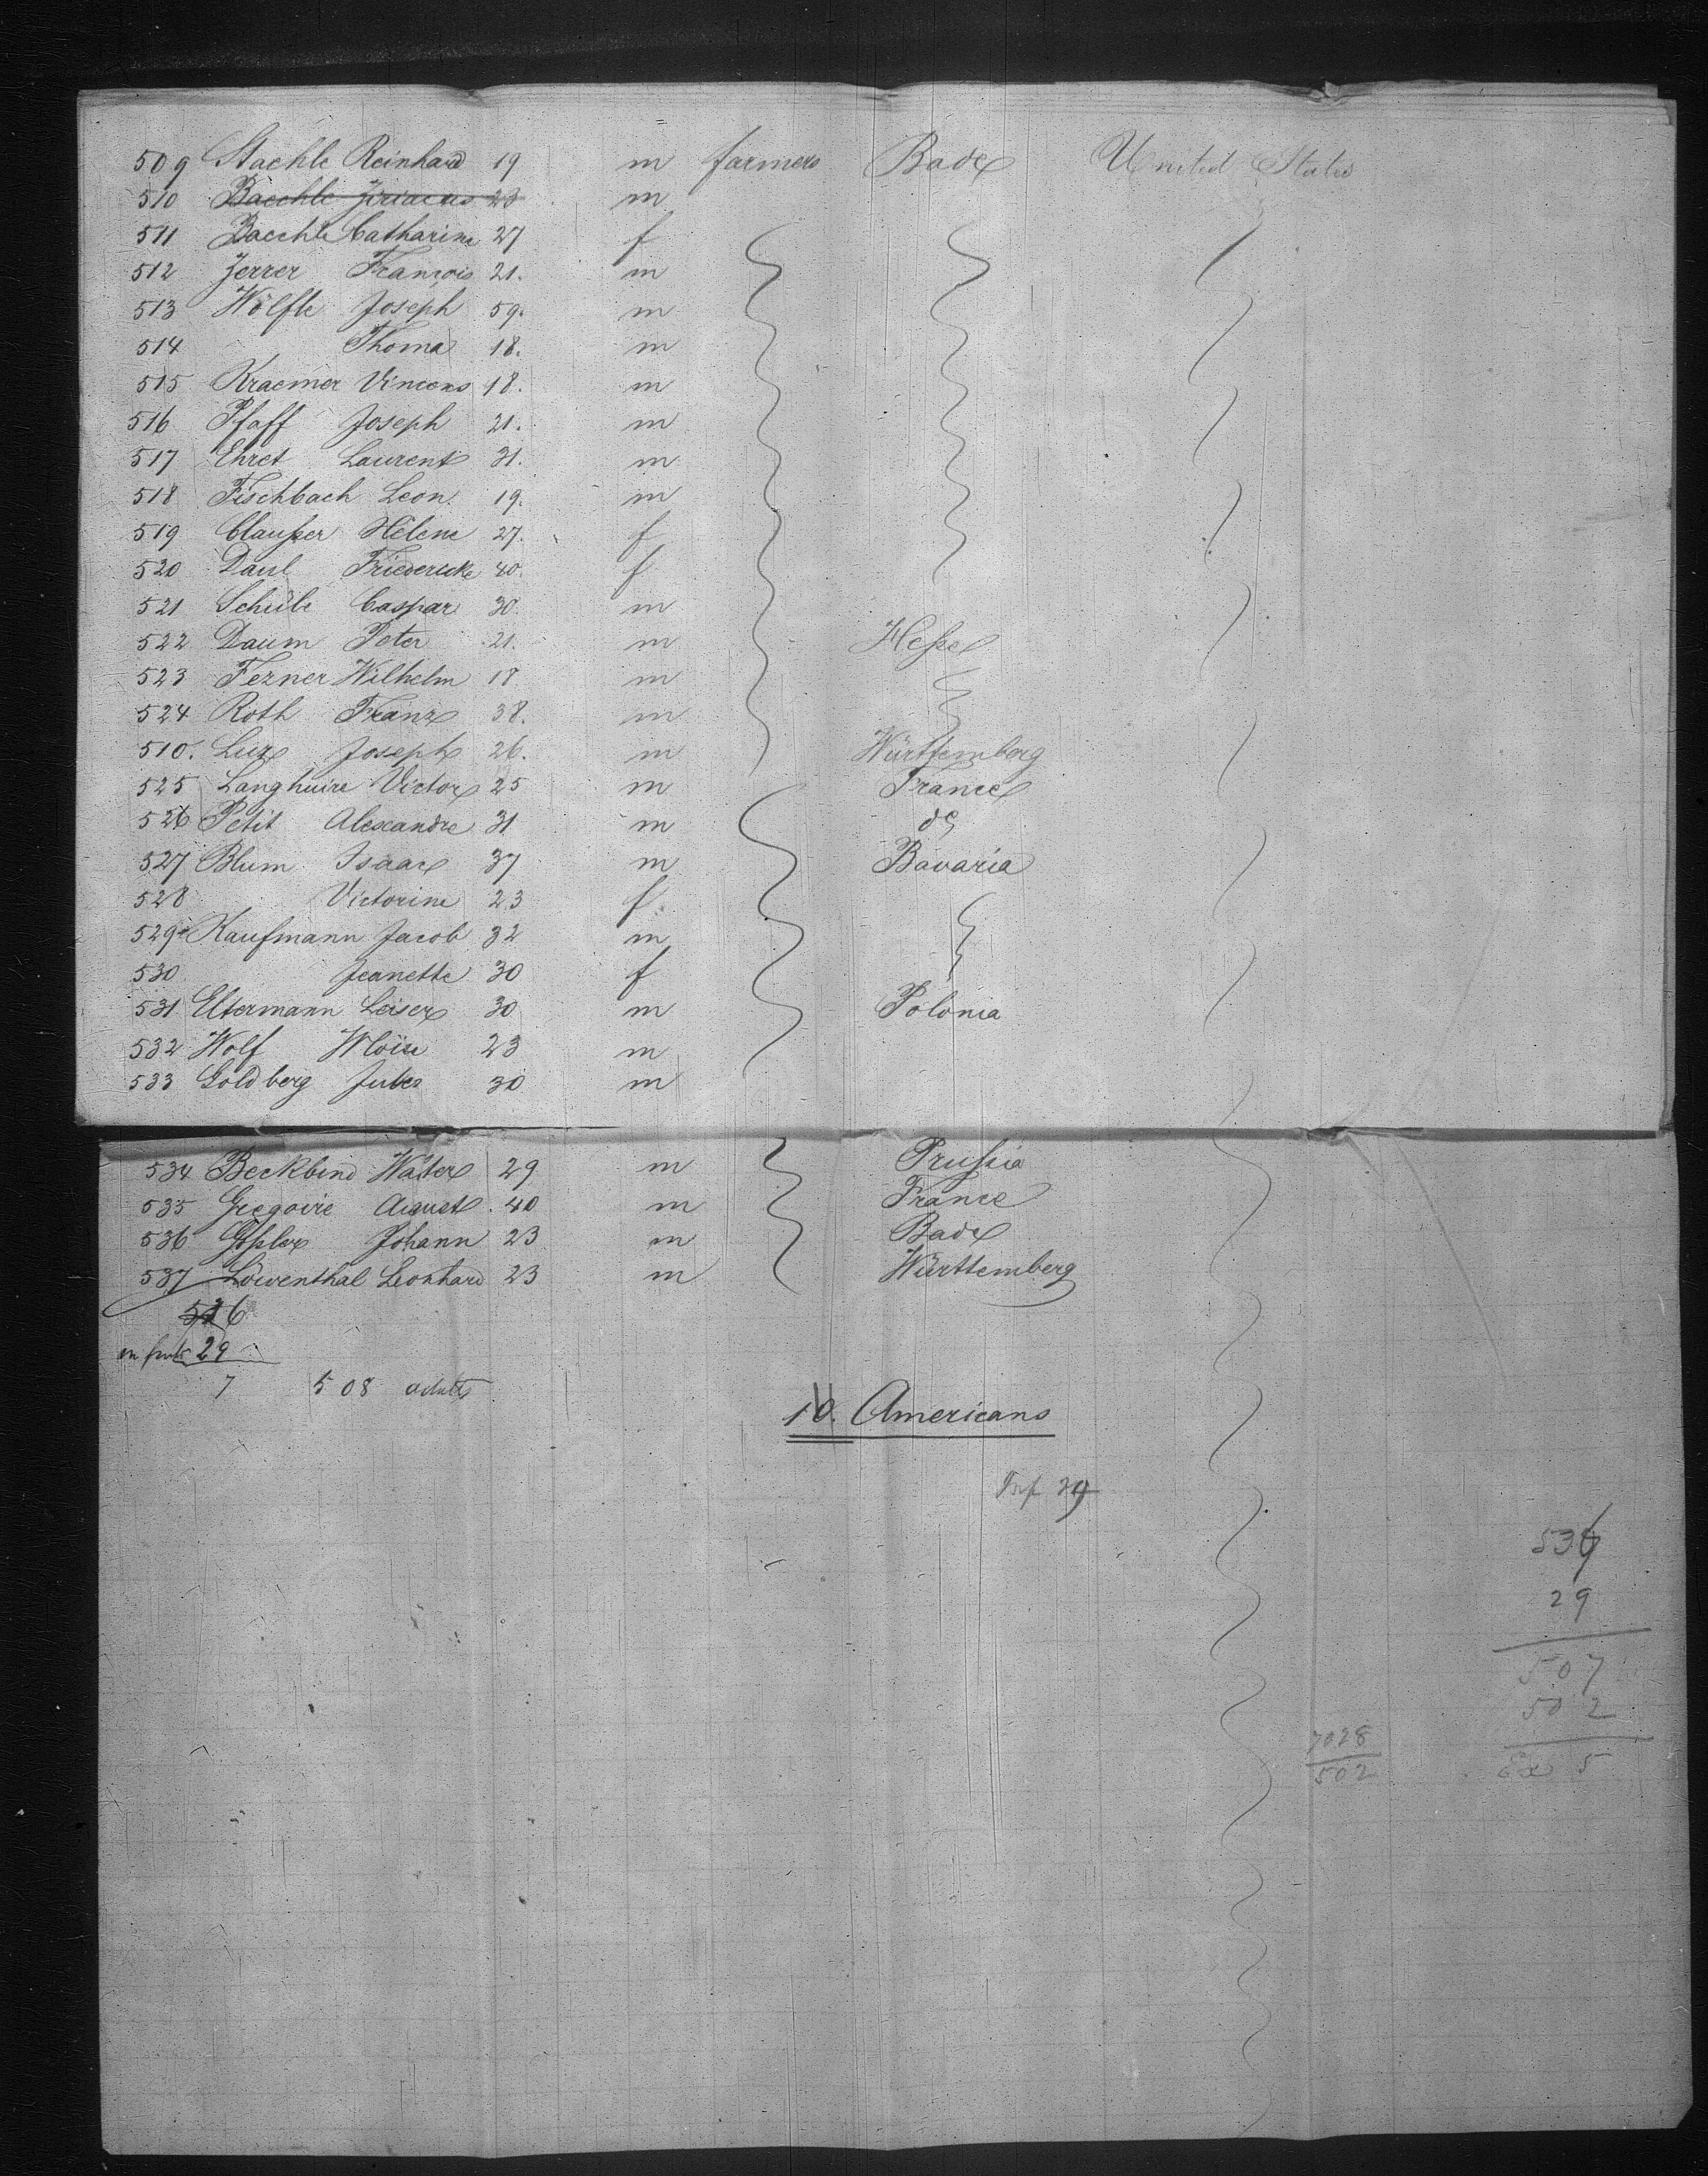 509 Staehle Reinhard 19 m farmers Bade United States
510 Baechle 23 m
511 Baechle Catharine 27 f
512 Jerrer François 21. m
513 Wölfle Joseph 59. m
514 Thoma 18. m
515 Kraemer Vincens 18. m
516 Pfaff Joseph 21. m
517 Ehret Laurent 31. m
518 Fischbach Leon 19. m
519 Claußer Hélène 27. f
520 Daul Friedericke 40. f
521 Schüle Caspar 30. m
522 Daum Peter 21. m Heße
523 Fezner Wilhelm 18 m
524 Roth Franz 38. m
510. Lux Joseph 26. m Württemberg
525 Langhuire Victor 25 m France
526 Petit Alexandre 31 m do
527 Blum Isaac 37 m Bavaria
528 Victorine 23 f
529 Kaufmann Jacob 32 m
530 Jeanette 30 f
531 Eltermann Leiser 30 m Polonia
532 Wolf 23 m
533 Goldberg Jules 30 m
534 Beckbind Walter 29 m Prußia
535 Gregoire August 40 m France
536 Johann 23 m Bade
537 Löwenthal Leonhard 23 m Württemberg
536
29
7 508 adults
10. Americans
Inf 29
536
29
507
502
7028
502
Ex 5